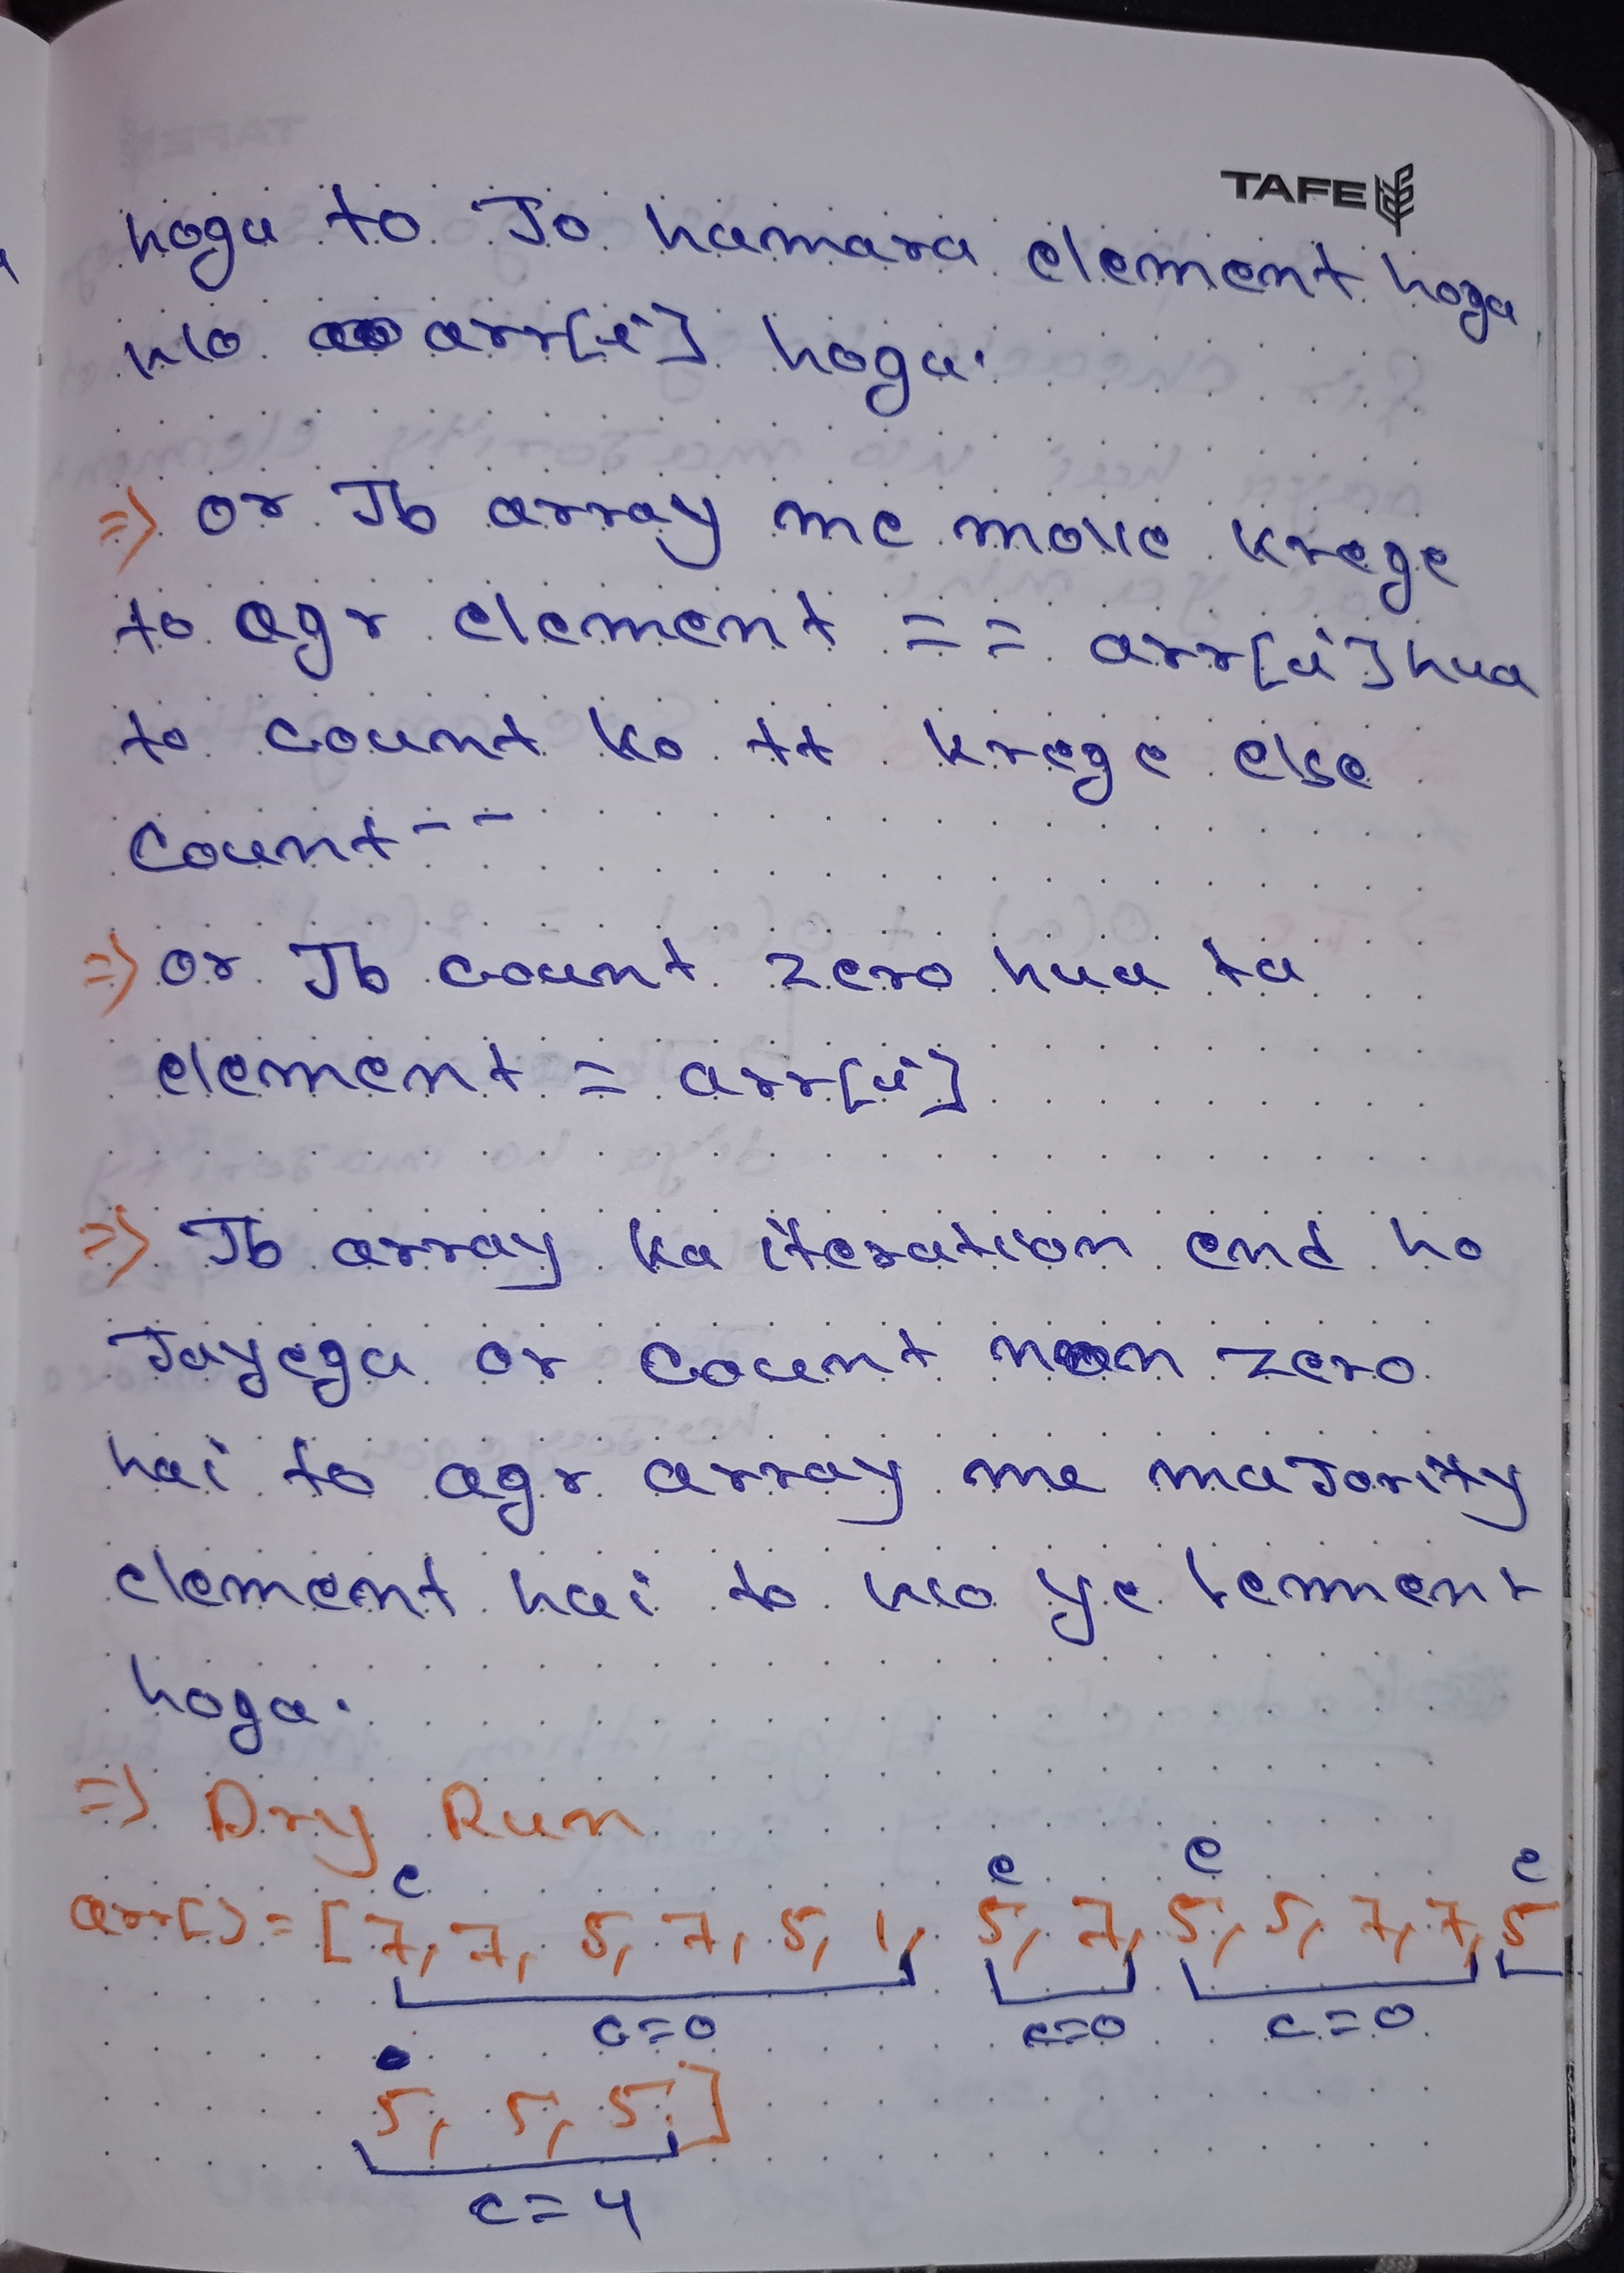 TAFE
hoga to Jo hamara element hoga
wo arr[i] hoga.
=> or Jb array me move krege
to agr element == arr[i] hua
to count ko ++ krege else
Count--
=> or Jb count zero hua to
element = arr[i]
=> Jb array ka iteration end ho
Jayega or count non zero
hai to agr array me maJority
element hai to wo ye lement
hoga.
=> Dry Run
e e e e
arr[] = [7, 7, 5, 7, 5, 1, 5, 7, 5, 5, 7, 7, 5
c=0 c=0 c=0
5, 5, 5,]
c=4